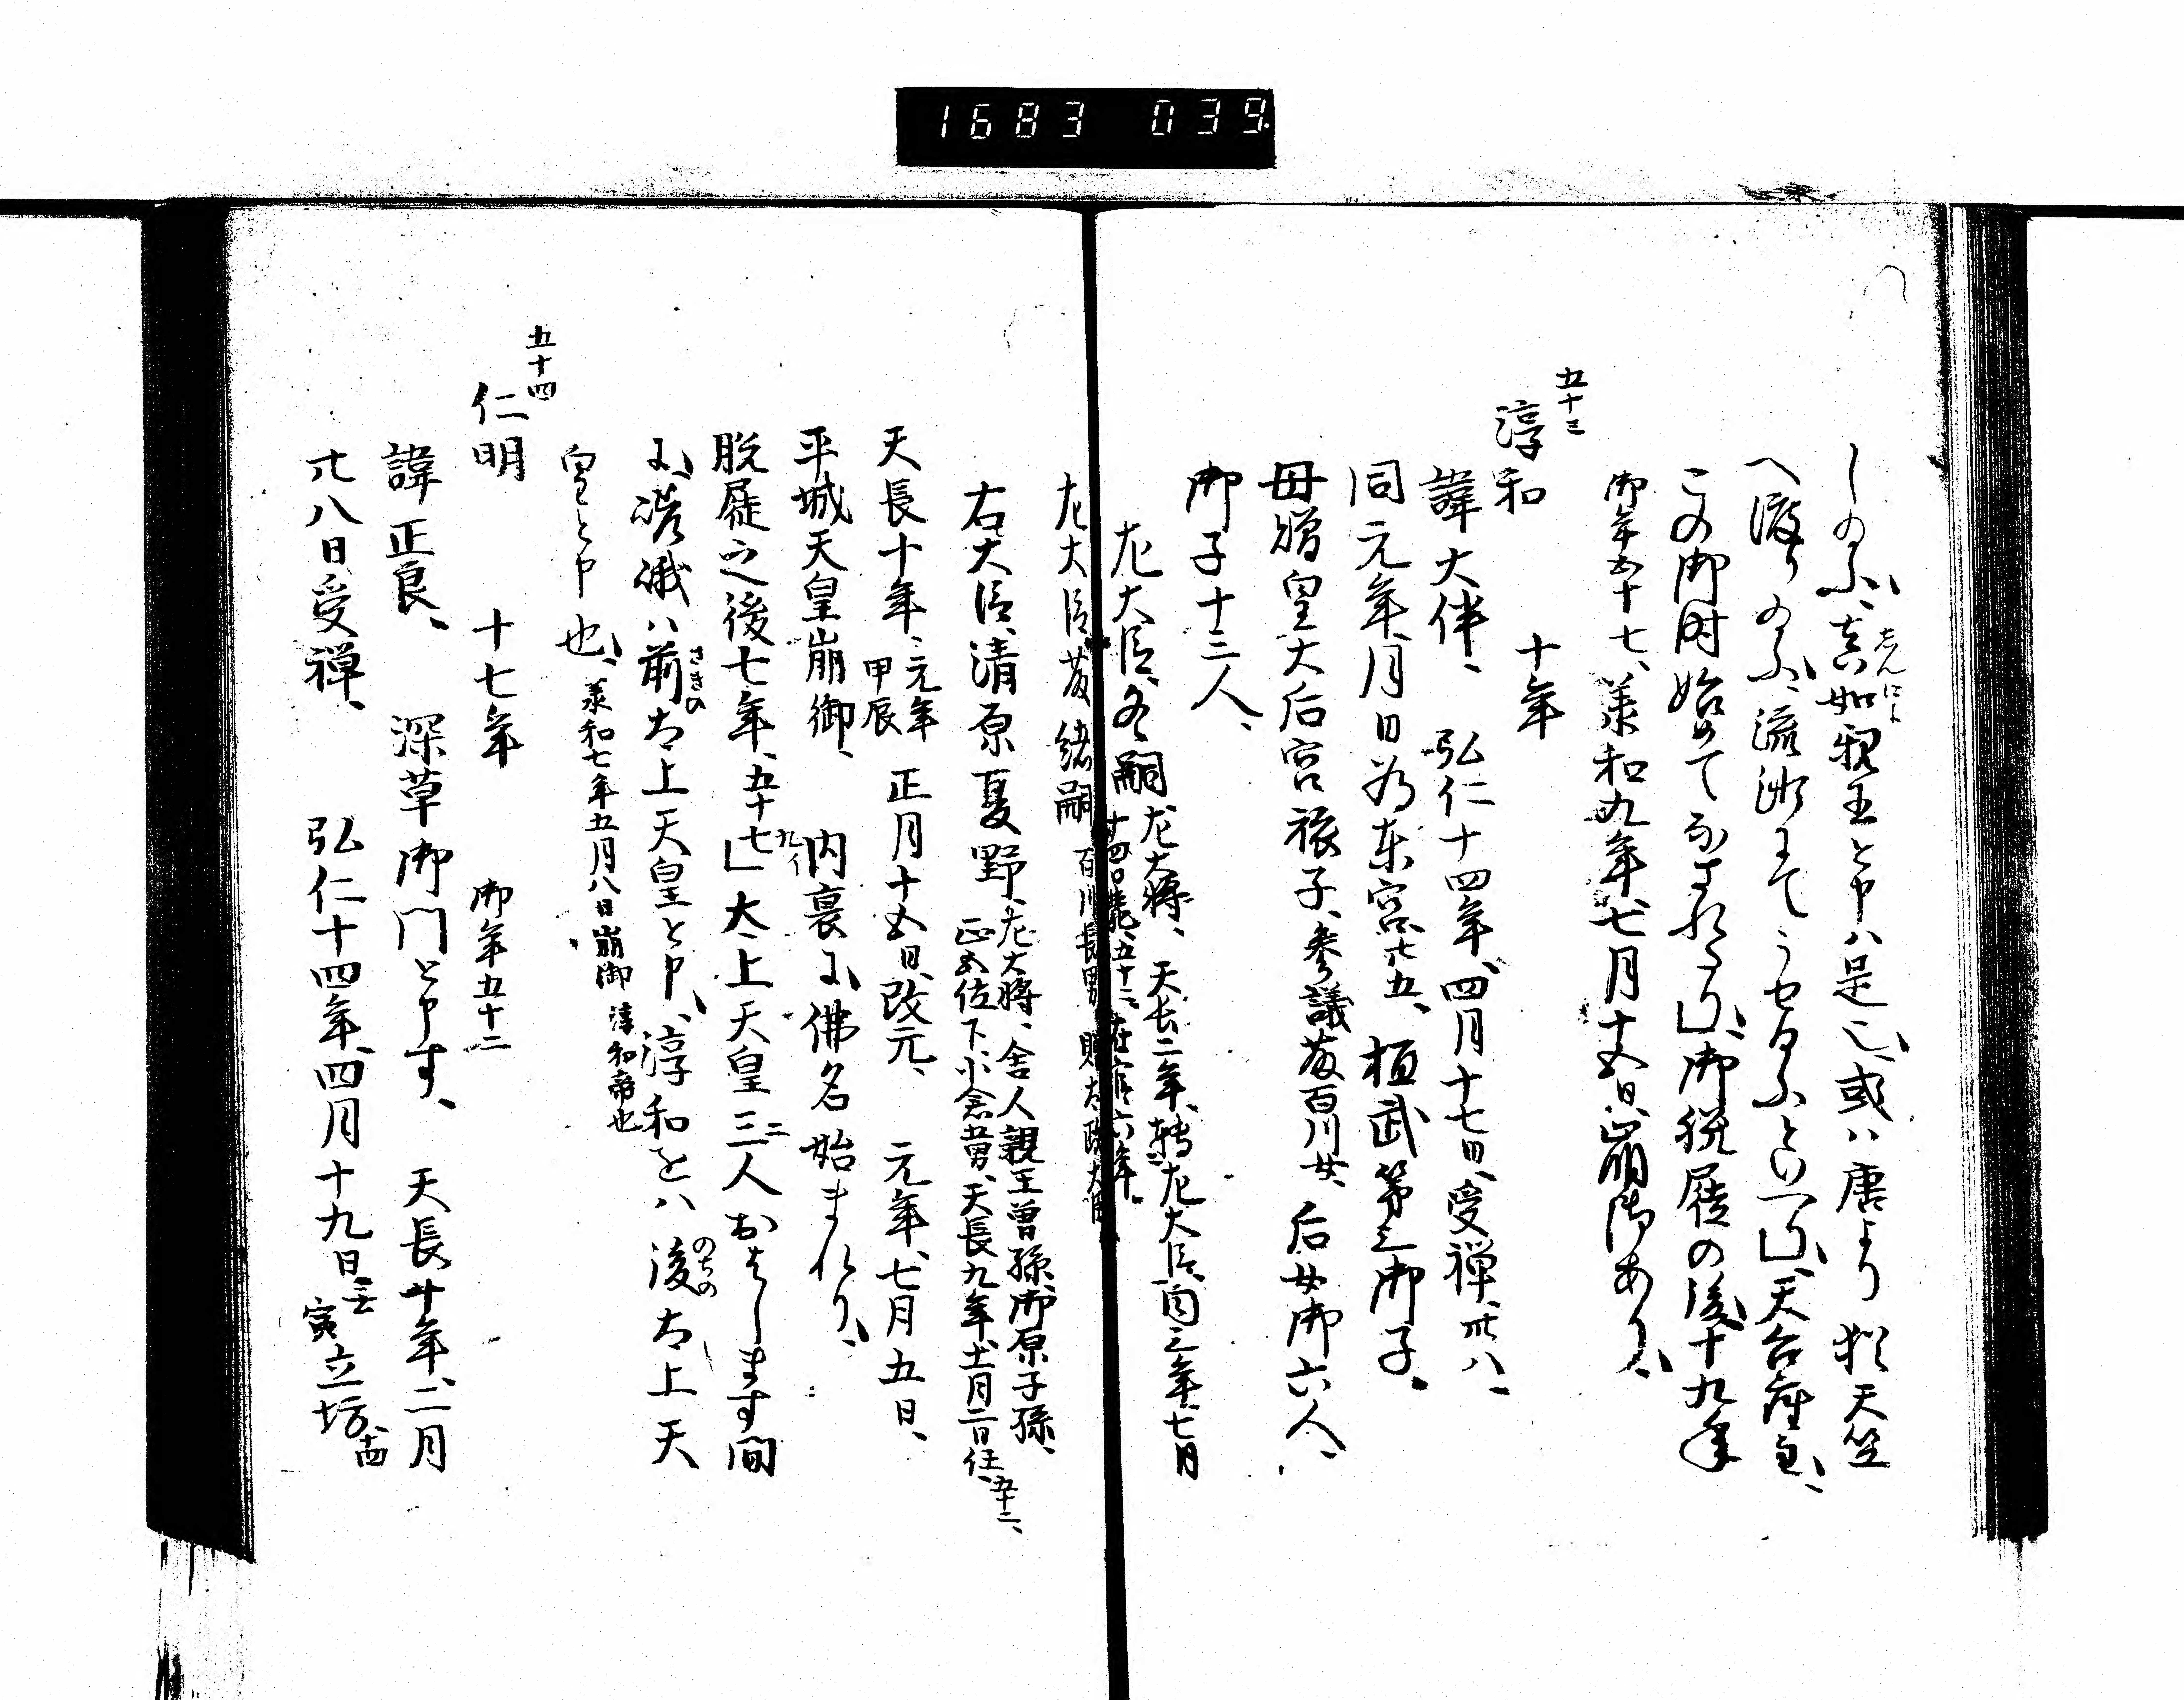 1683 039.
しめ給ふ、真如親王と申ハ是也、或ハ唐より猶天竺
しんによ
へ渡り給ふ、流沙にてうせ給ふといへり、天台座主、
この御時始めてなされたり、御脱屣の後十九年
御年五十七、承和九年七月十五日、崩御あり、
五十三
淳和 十年
諱大伴、 弘仁十四年、四月十七日、受禅、卅八、
同元年、月日為東宮、廿五、桓武第三御子、
母贈皇大后宮旅子、参議藤百川女、后女御六人、
御子十三人、
左大臣、冬嗣 左大将、天長二年、転左大臣、同三年、七月
左大臣藤緒嗣 百川長男
右大臣、清原夏野、左大将、舎人親王曽孫、御原子孫、
正五位下、小倉男、天長九年、十一月二日任、五十二、
天長十年、元年甲辰 正月十五日、改元、 元年、七月五日、
平城天皇崩御、 内裏に、佛名始まれり、
脱屣之後七年、五十七 九イ 太上天皇三人おはします間
二
に、嵯峨ハ前太上天皇と申、淳和をハ後太上天
さきの
のちの
皇と申也、承和七年五月八日崩御 淳和帝也
五十四
仁明 十七年 御年五十二
諱正良、 深草御門と申す、 天長十年、二月
廿八日受禅、 弘仁十四年、四月十九日 壬寅立坊、十四